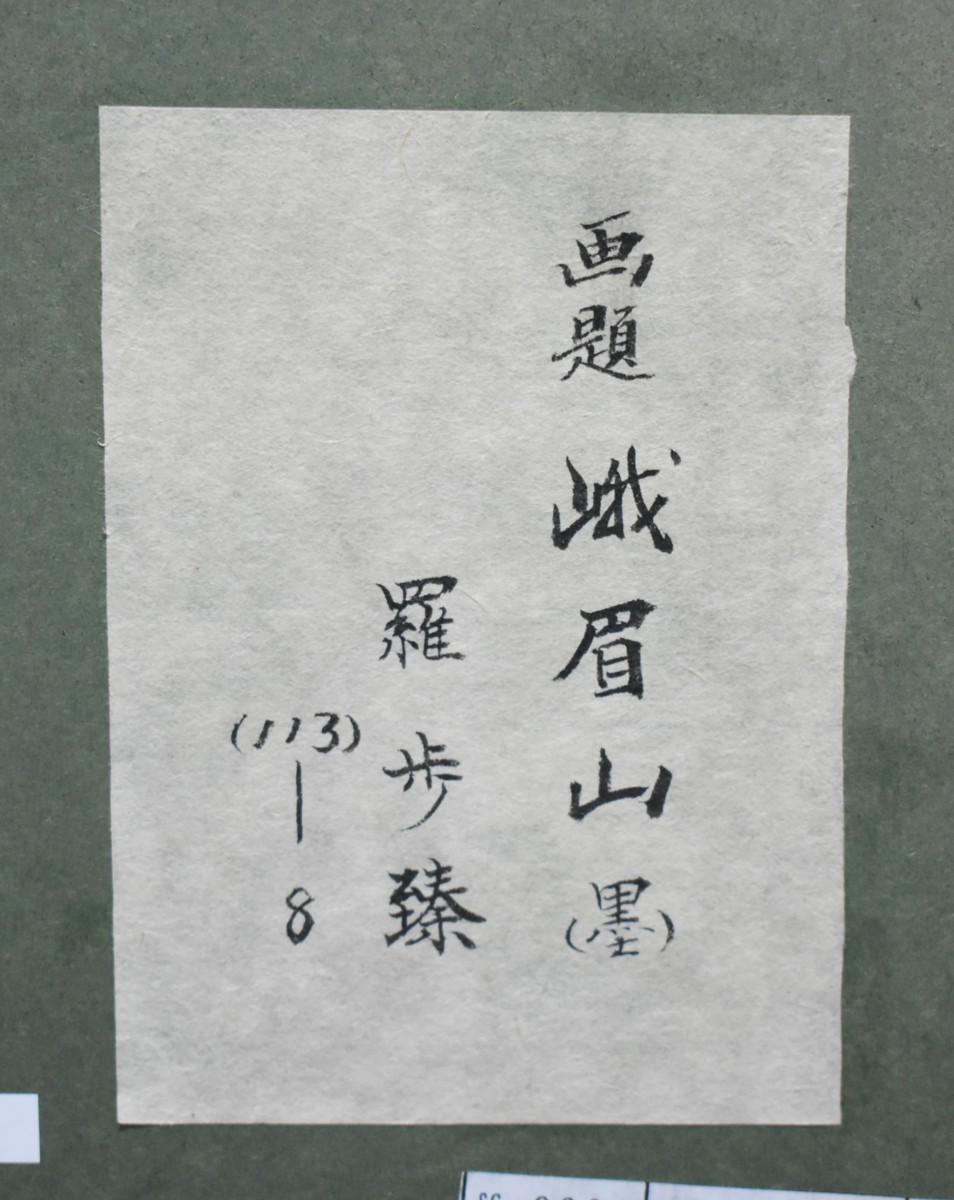 画題 峨眉山(墨)
羅歩臻
(113)—8